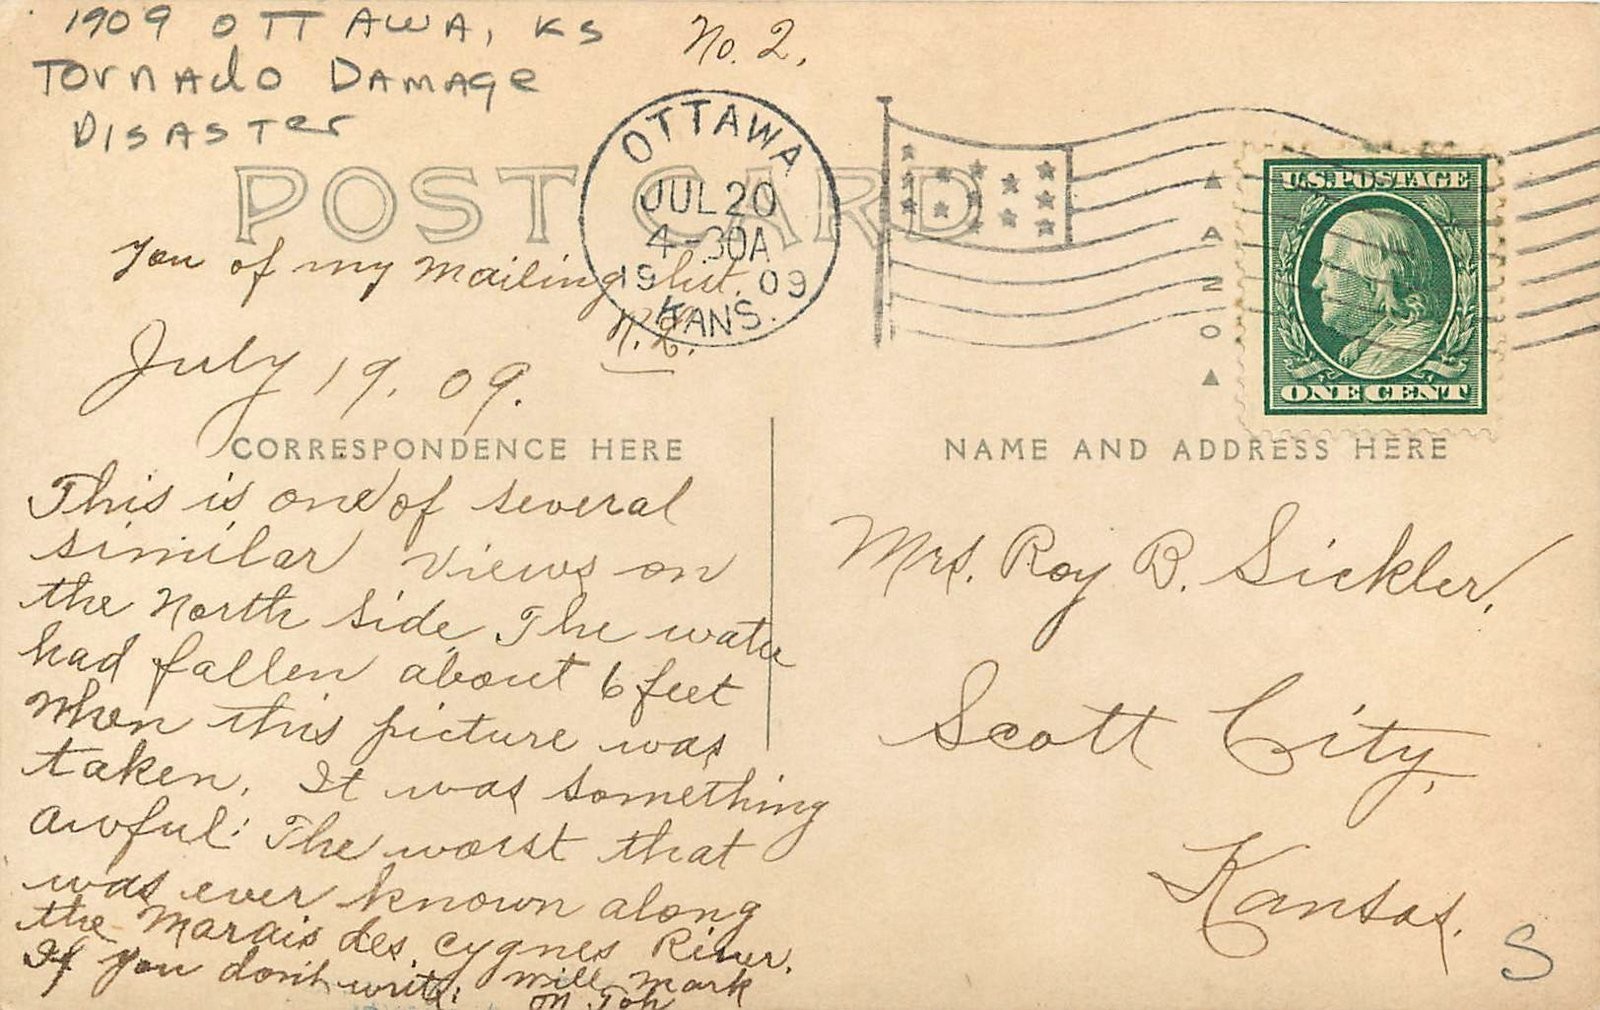 1909 OTTAWA, KS
Tornado Damage
Disaster
No. 2.
POST CARD
OTTAWA
JUL 20
4-30A
1909
KANS.
U.S. POSTAGE
ONE CENT
you of my mailing list.
July 19. 09.
CORRESPONDENCE HERE
This is one of several
similar views on
the North side. The water
had fallen about 6 feet
when this picture was
taken. It was something
awful: The worst that
was ever known along
the Marais des. Cygnes River.
If you don't write, will mark
on top
NAME AND ADDRESS HERE
Mrs. Roy B. Sickler,
Scott City,
Kansas.
S